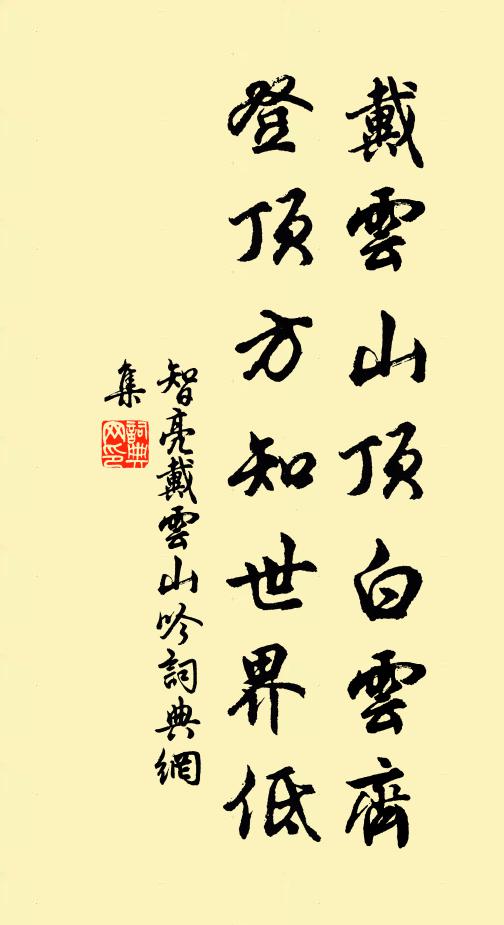 戴雲山頂白雲齊
登頂方知世界低
智亮戴雲山吟詞典網
集
詞典
网印